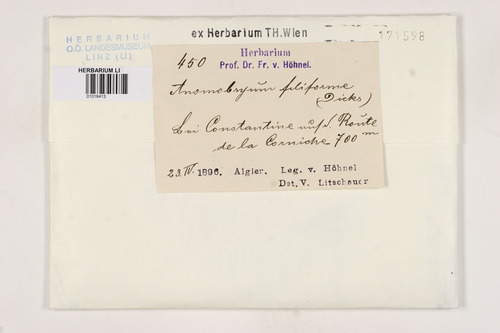 ex Herbarium TH.Wien
HERBARIUM
O.Ö. LANDESMUSEUM
LINZ (LI)
171598
HERBARIUM LI
01016413
450
Herbarium
Prof. Dr. Fr. v. Höhnel.
Anomobryum filiforme
(Dicks)
Bei Constantine auf d. Route
de la Corniche 700 m
23.IV. 1896. Algier. Leg. v. Höhnel
Det. V. Litschauer